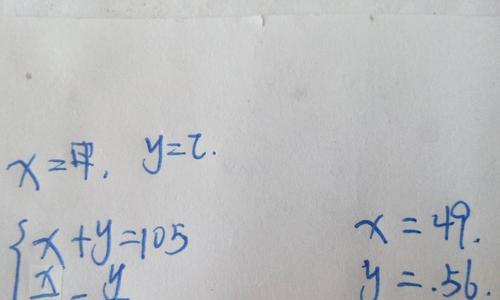 x=甲, y=乙.
x+y=105
x = y
x=49.
y=.56.